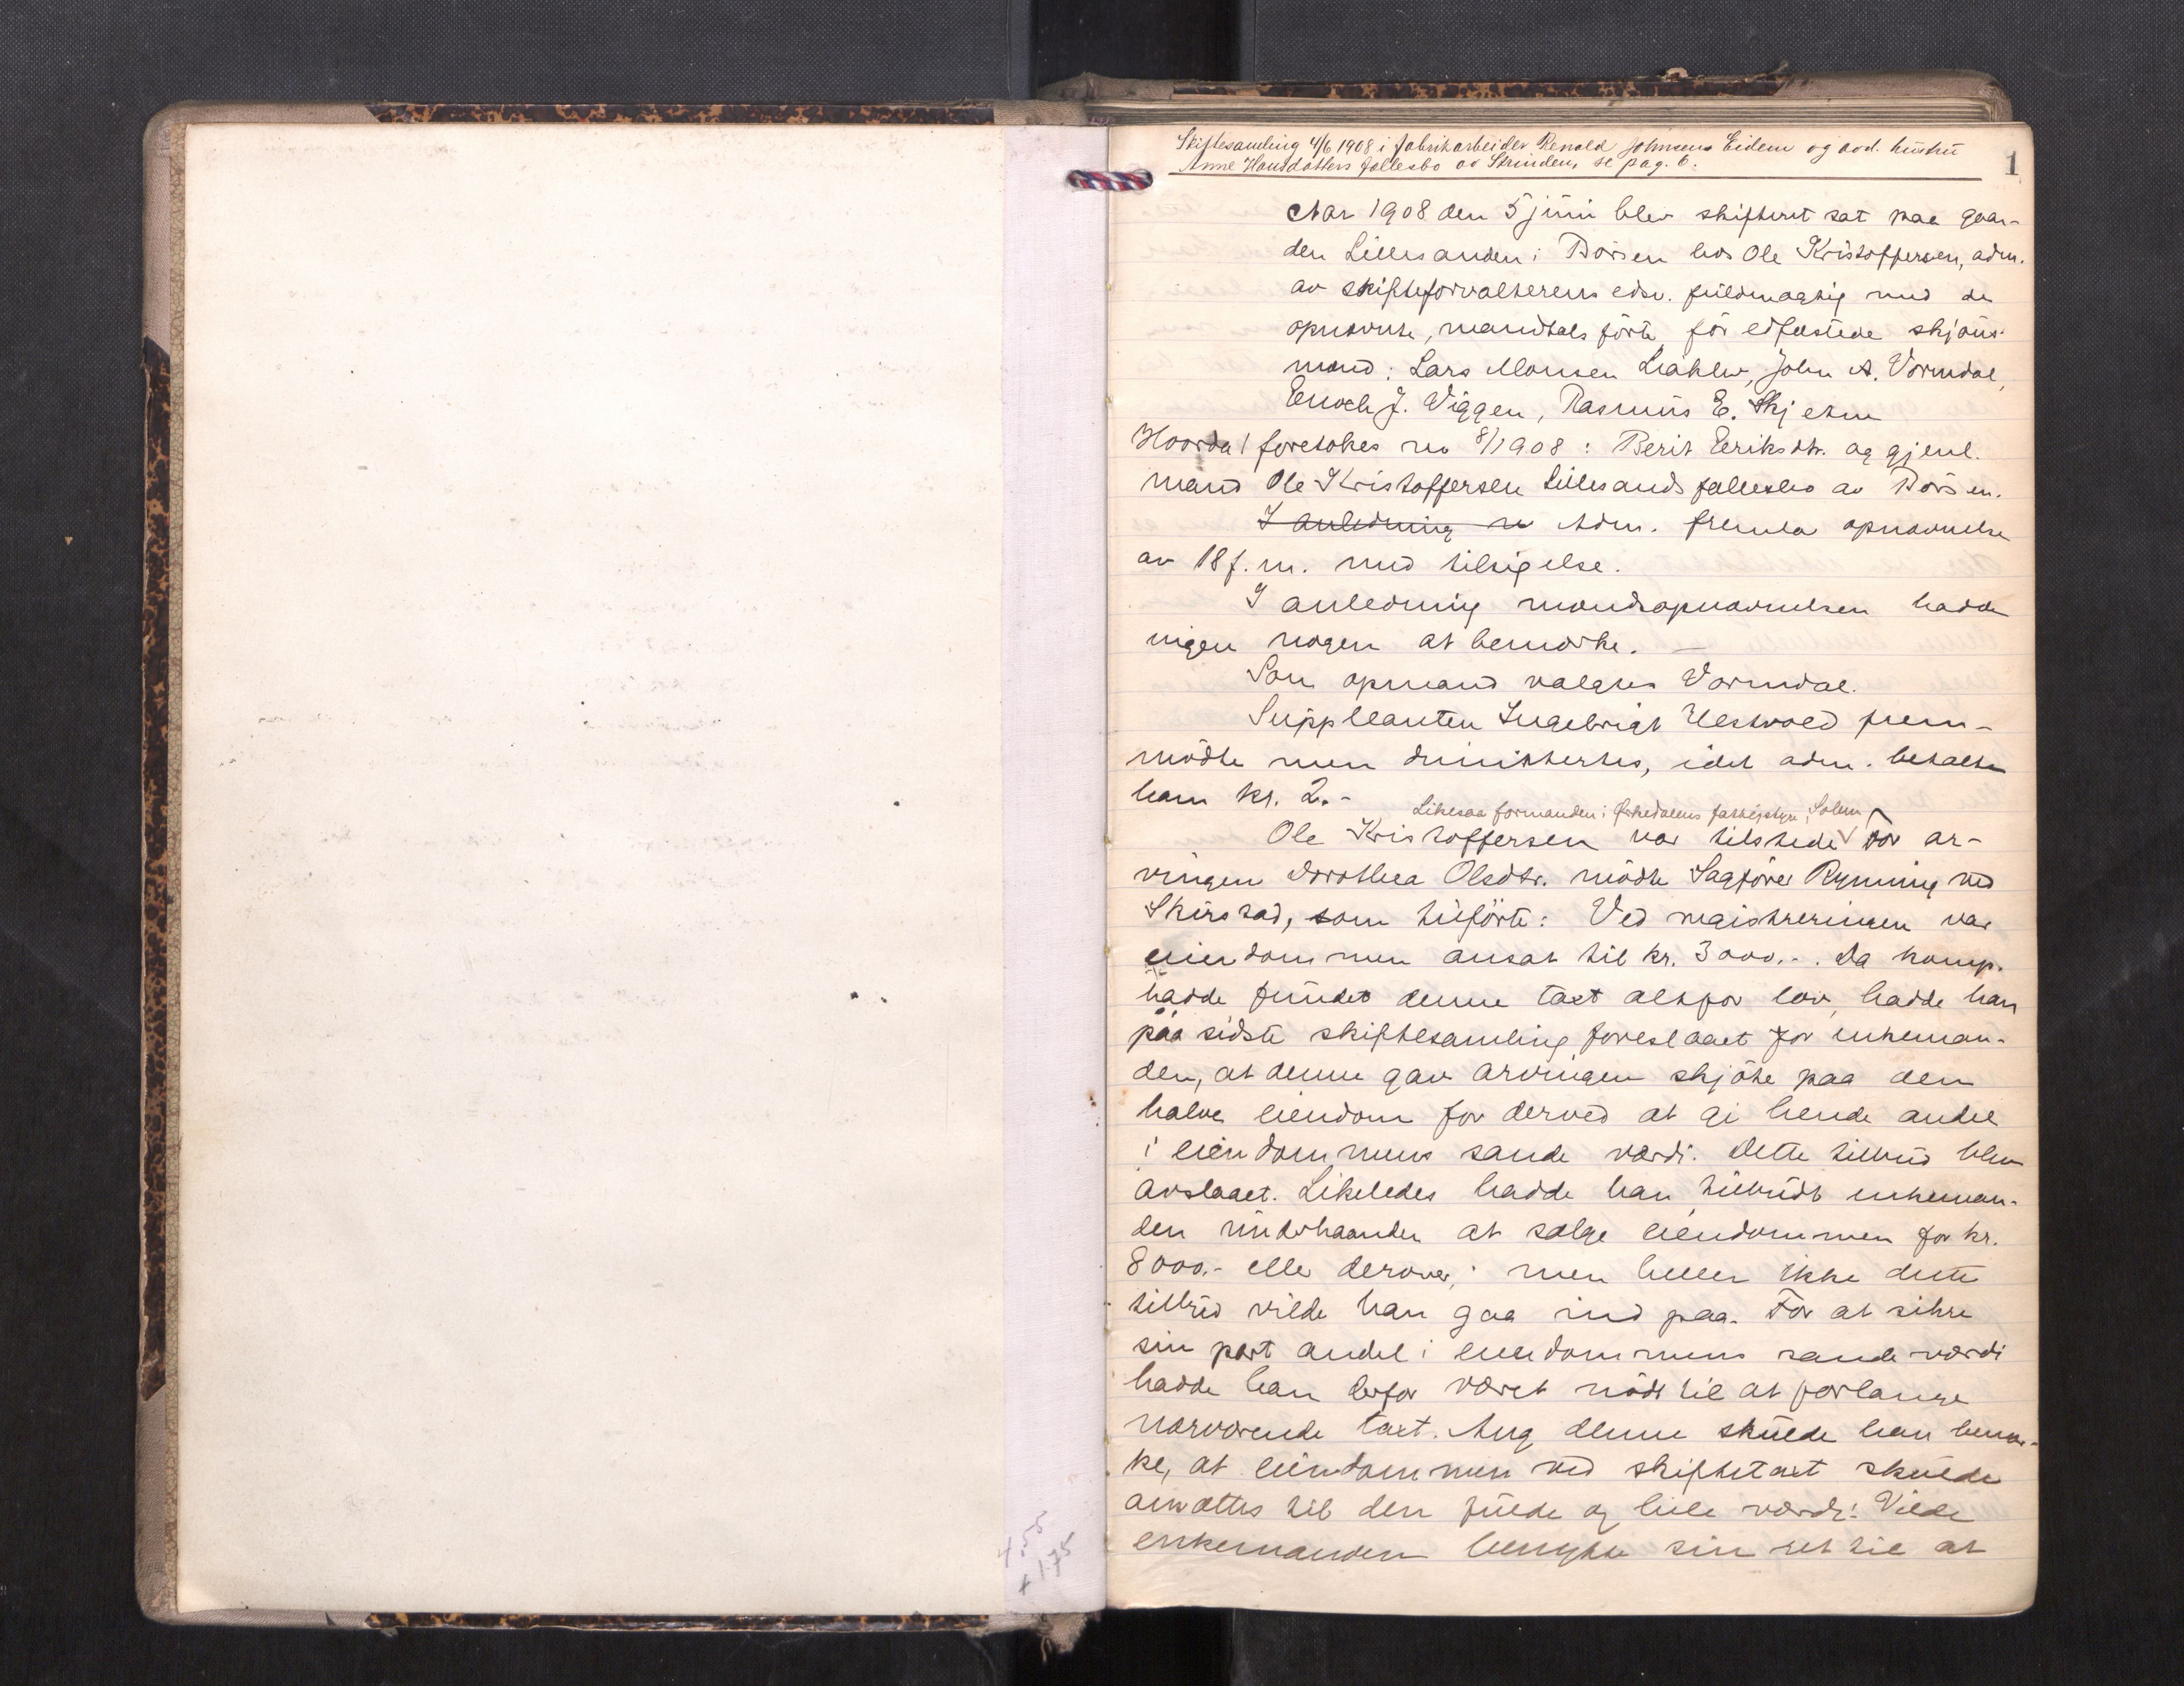 Skiftesamling 4/6 1908 i fabrikarbeider Renald Johnsens Eidem og avd. hustru
Anne Hansdatters fællesbo av Strinden, se pag. 6.
1
Aar 1908 den 5 juni blev skifteret sat paa gaar-
den Lillesanden i Börsen hos Ole Kristoffersen, adm.
av skifteforvalterens edsv. fuldmægtig med de
opnævnte, mandtalsförte, för edfæstede skjöns-
mænd: Lars Monsen Lrahlw, John A. Vormdal,
Enoch J. Viggen, Rasmus E. Skjetne
Hvorda/ foretokes no 8/1908: Berit Eriksdtr. og gjenl.
mand Ole Kristoffersen Lillesands fællesbo av Börsen.
I anledning Adm. fremla opnævnelse
av 18 f. m. med tilsigelse.
I anledning mandsopnævnelsen hadde
ingen nogen at bemærke. —
Som opmand valgtes Vormdal.
Suppleanten Ingebrigt Ulstvold frem-
mödte men dimitertes, idet adm. betalte
ham kr. 2.-
Likesaa formanden i Orkedalens fattigstyre, Solem
Ole Kristoffersen var tilstede For ar-
vingen Dorothea Olsdtr. mödte Sagförer Rynning ved
Skirstad, som tilförte: Ved registreringen var
eiendommen ansat til kr. 3000.-. Da komp.
hadde fundet denne taxt altfor lav, hadde han
paa sidste skiftesamling foreslaaet for enkeman-
den, at denne gav arvingen skjöte paa den
halve eiendom for derved at gi hende andel
i eiendommens sande værdi. Dette tilbud blev
avslaaet. Likeledes hadde han tilbudt enkeman-
den underhaanden at sælge eiendommen for kr.
8000.- eller derover; men heller ikke dette
tilbud vilde han gaa ind paa. For at sikre
sin part andel i eiendommens sande værdi
hadde han derfor været nödt til at forlange
nærværende taxt. Ang denne skulde han bemær-
ke, at eiendommen ved skiftetaxt skulde
ansættes til den fulde og hele værdi. Vilde
enkemanden benytte sin ret til at
4.55
+ 1.75